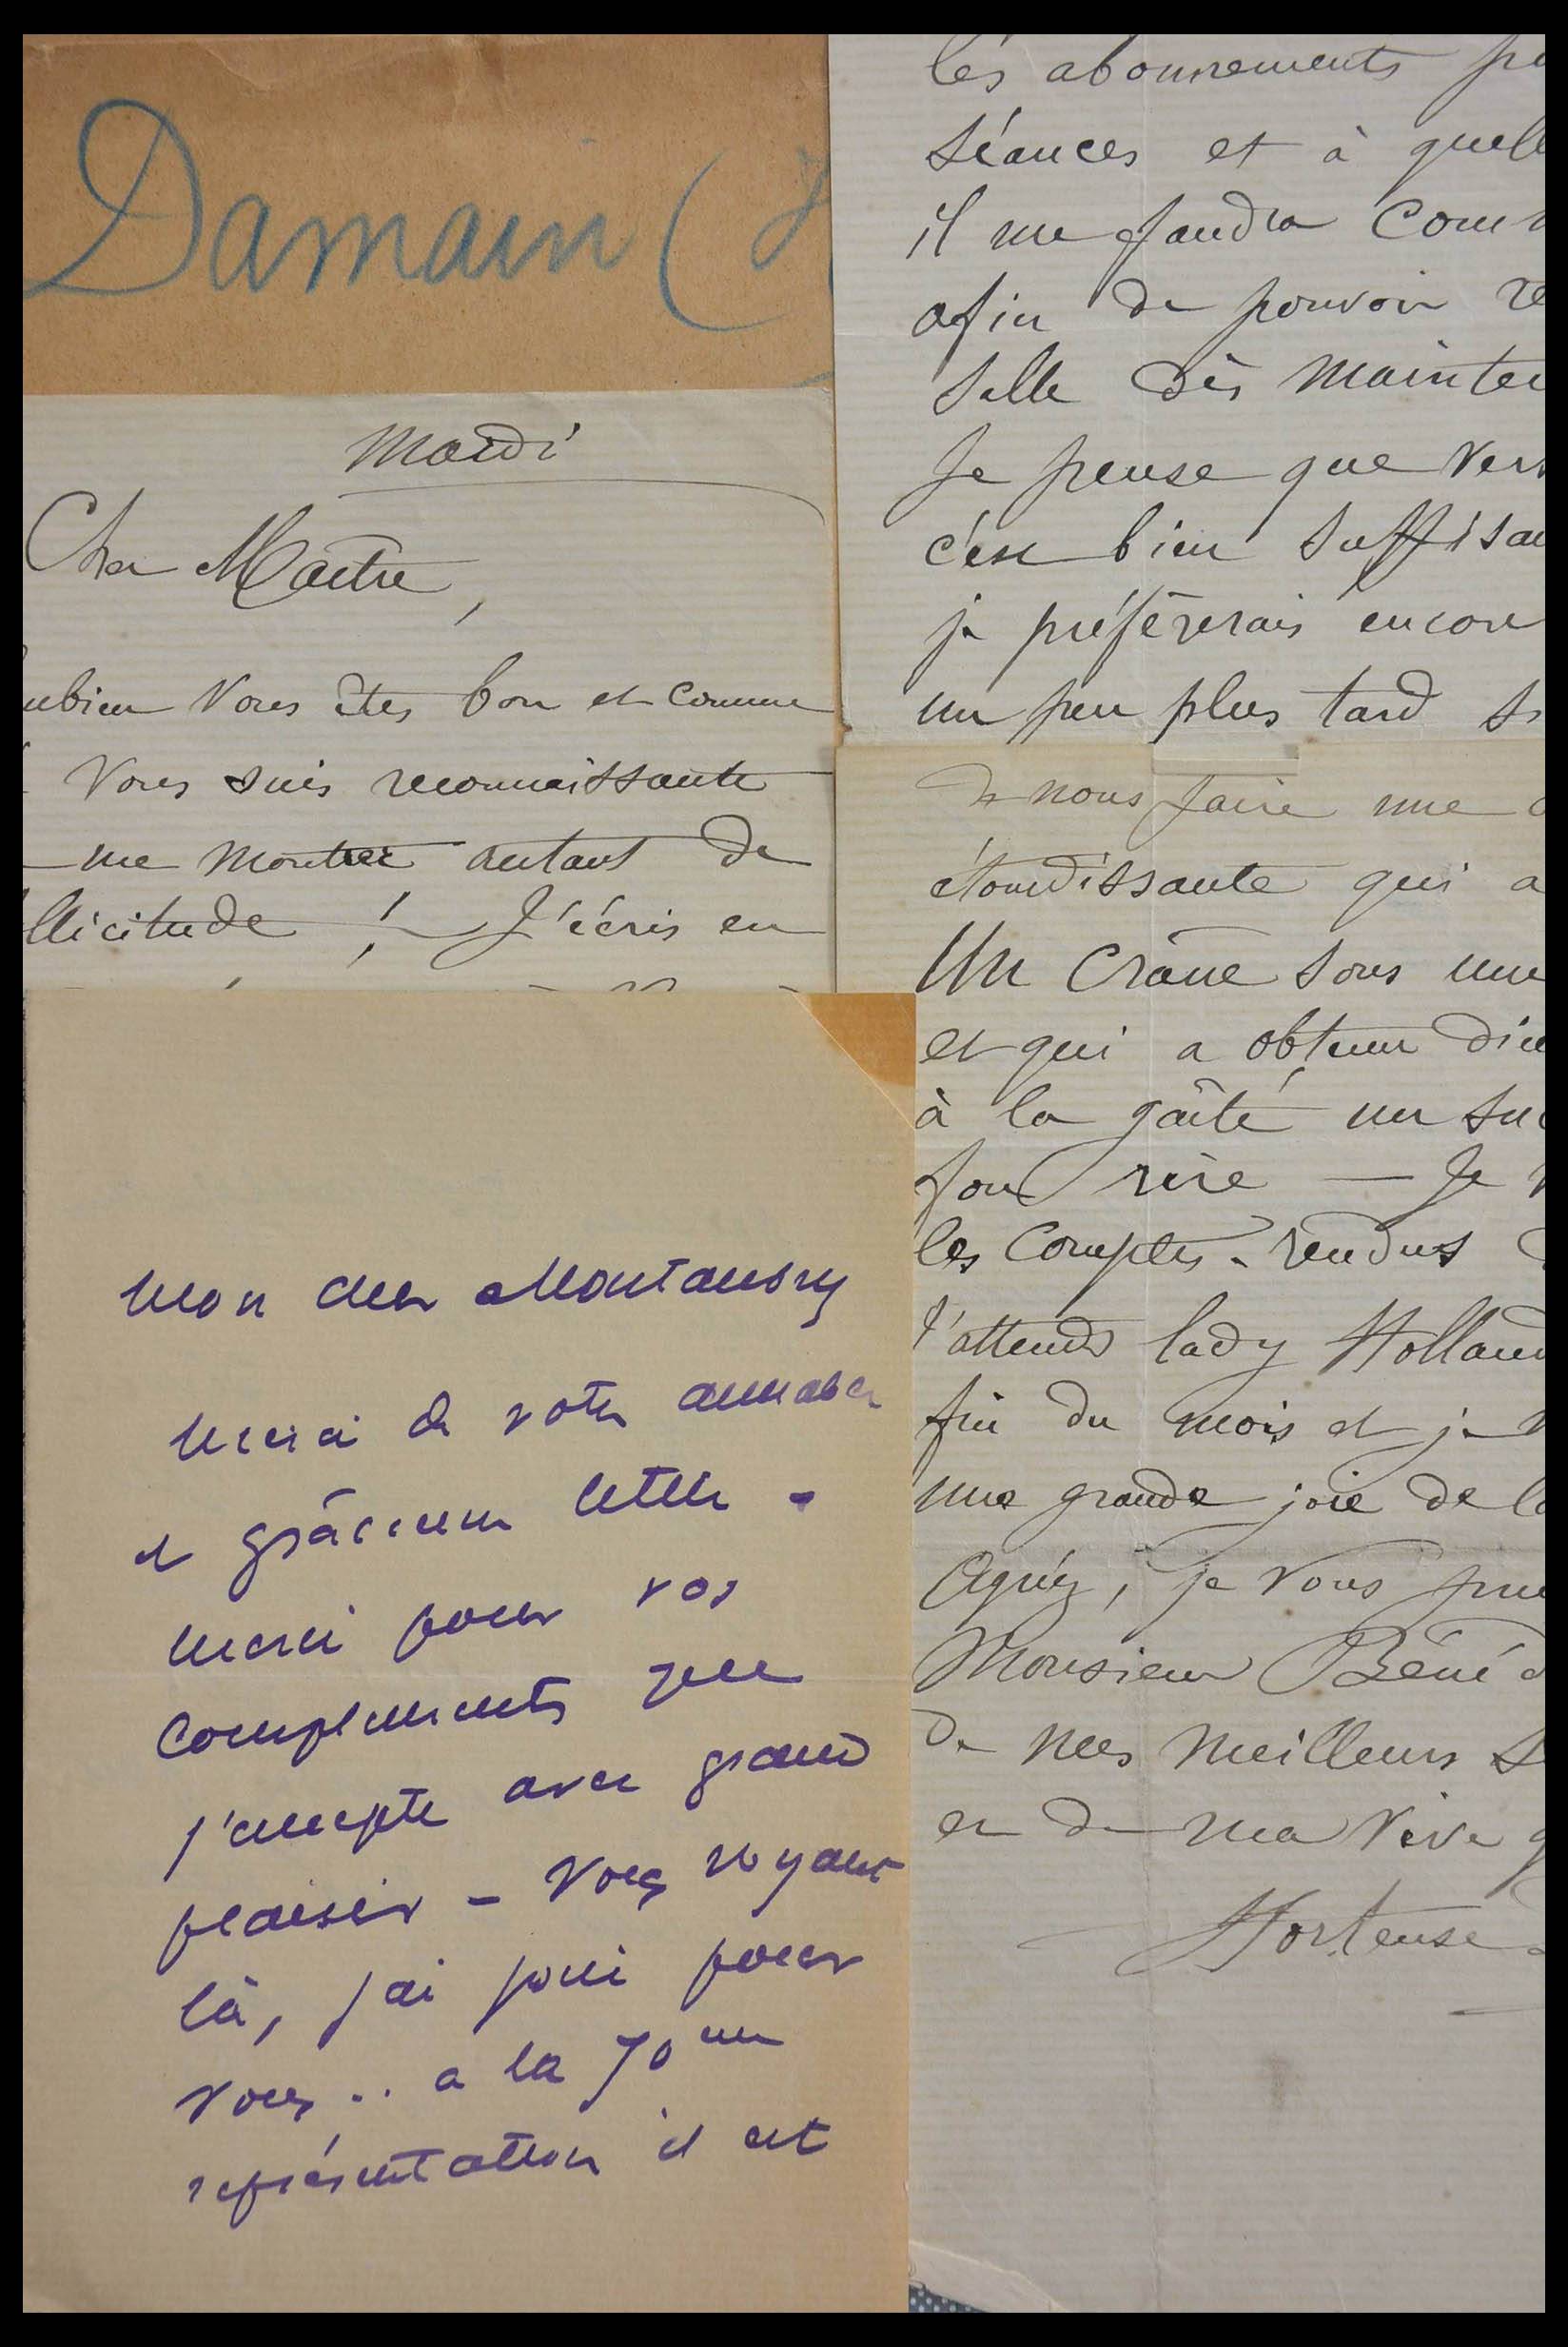 Damain (J
Mardi
Cher Maître,
mbien Vous êtes bon et comme
Vous suis reconnaissante
me montrer autant de
llicitude ! J'écris en
les abonnements po
séances et à quell
il me faudra com
afin de pouvoir re
salle dès mainten
Je pense que vers
c'est bien suffisan
je préfèrerais encore
un peu plus tard s
de nous faire une
étourdissante qui a
Un Crâne sous une
et qui a obtenu
à la gaîté un suc
fou rire — Je
les Comptes-rendus
J'attends lady Holland
fin du mois et je
une grande joie de
Agréez, je vous prie
Monsieur Béné
de mes meilleurs s
et de ma vive g
Hortense
Mon cher Montaubry
merci de votre aimable
et grâcieuse lettre -
merci pour vos
compliments que
j'accepte avec grand
plaisir - Vous voyant
là, j'ai joué pour
vous .. a la 70me
représentation il est